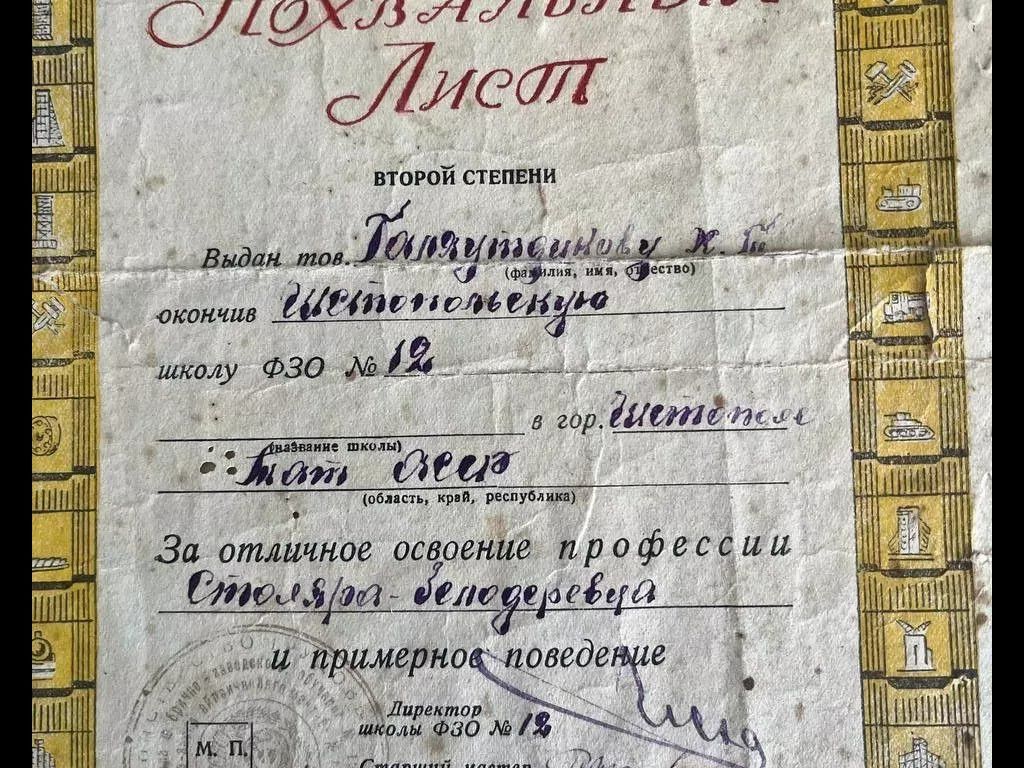 Похвальный
Лист
ВТОРОЙ СТЕПЕНИ
Выдан тов. Галяутдинову Х. Г.
(фамилия, имя, отчество)
окончив Чистопольскую
школу ФЗО № 12
в гор. Чистополе
(название школы)
Тат АССР
(область, край, республика)
За отличное освоение профессии
Столяра-белодеревца
и примерное поведение
Директор
школы ФЗО № 12
М. П.
Старший мастер